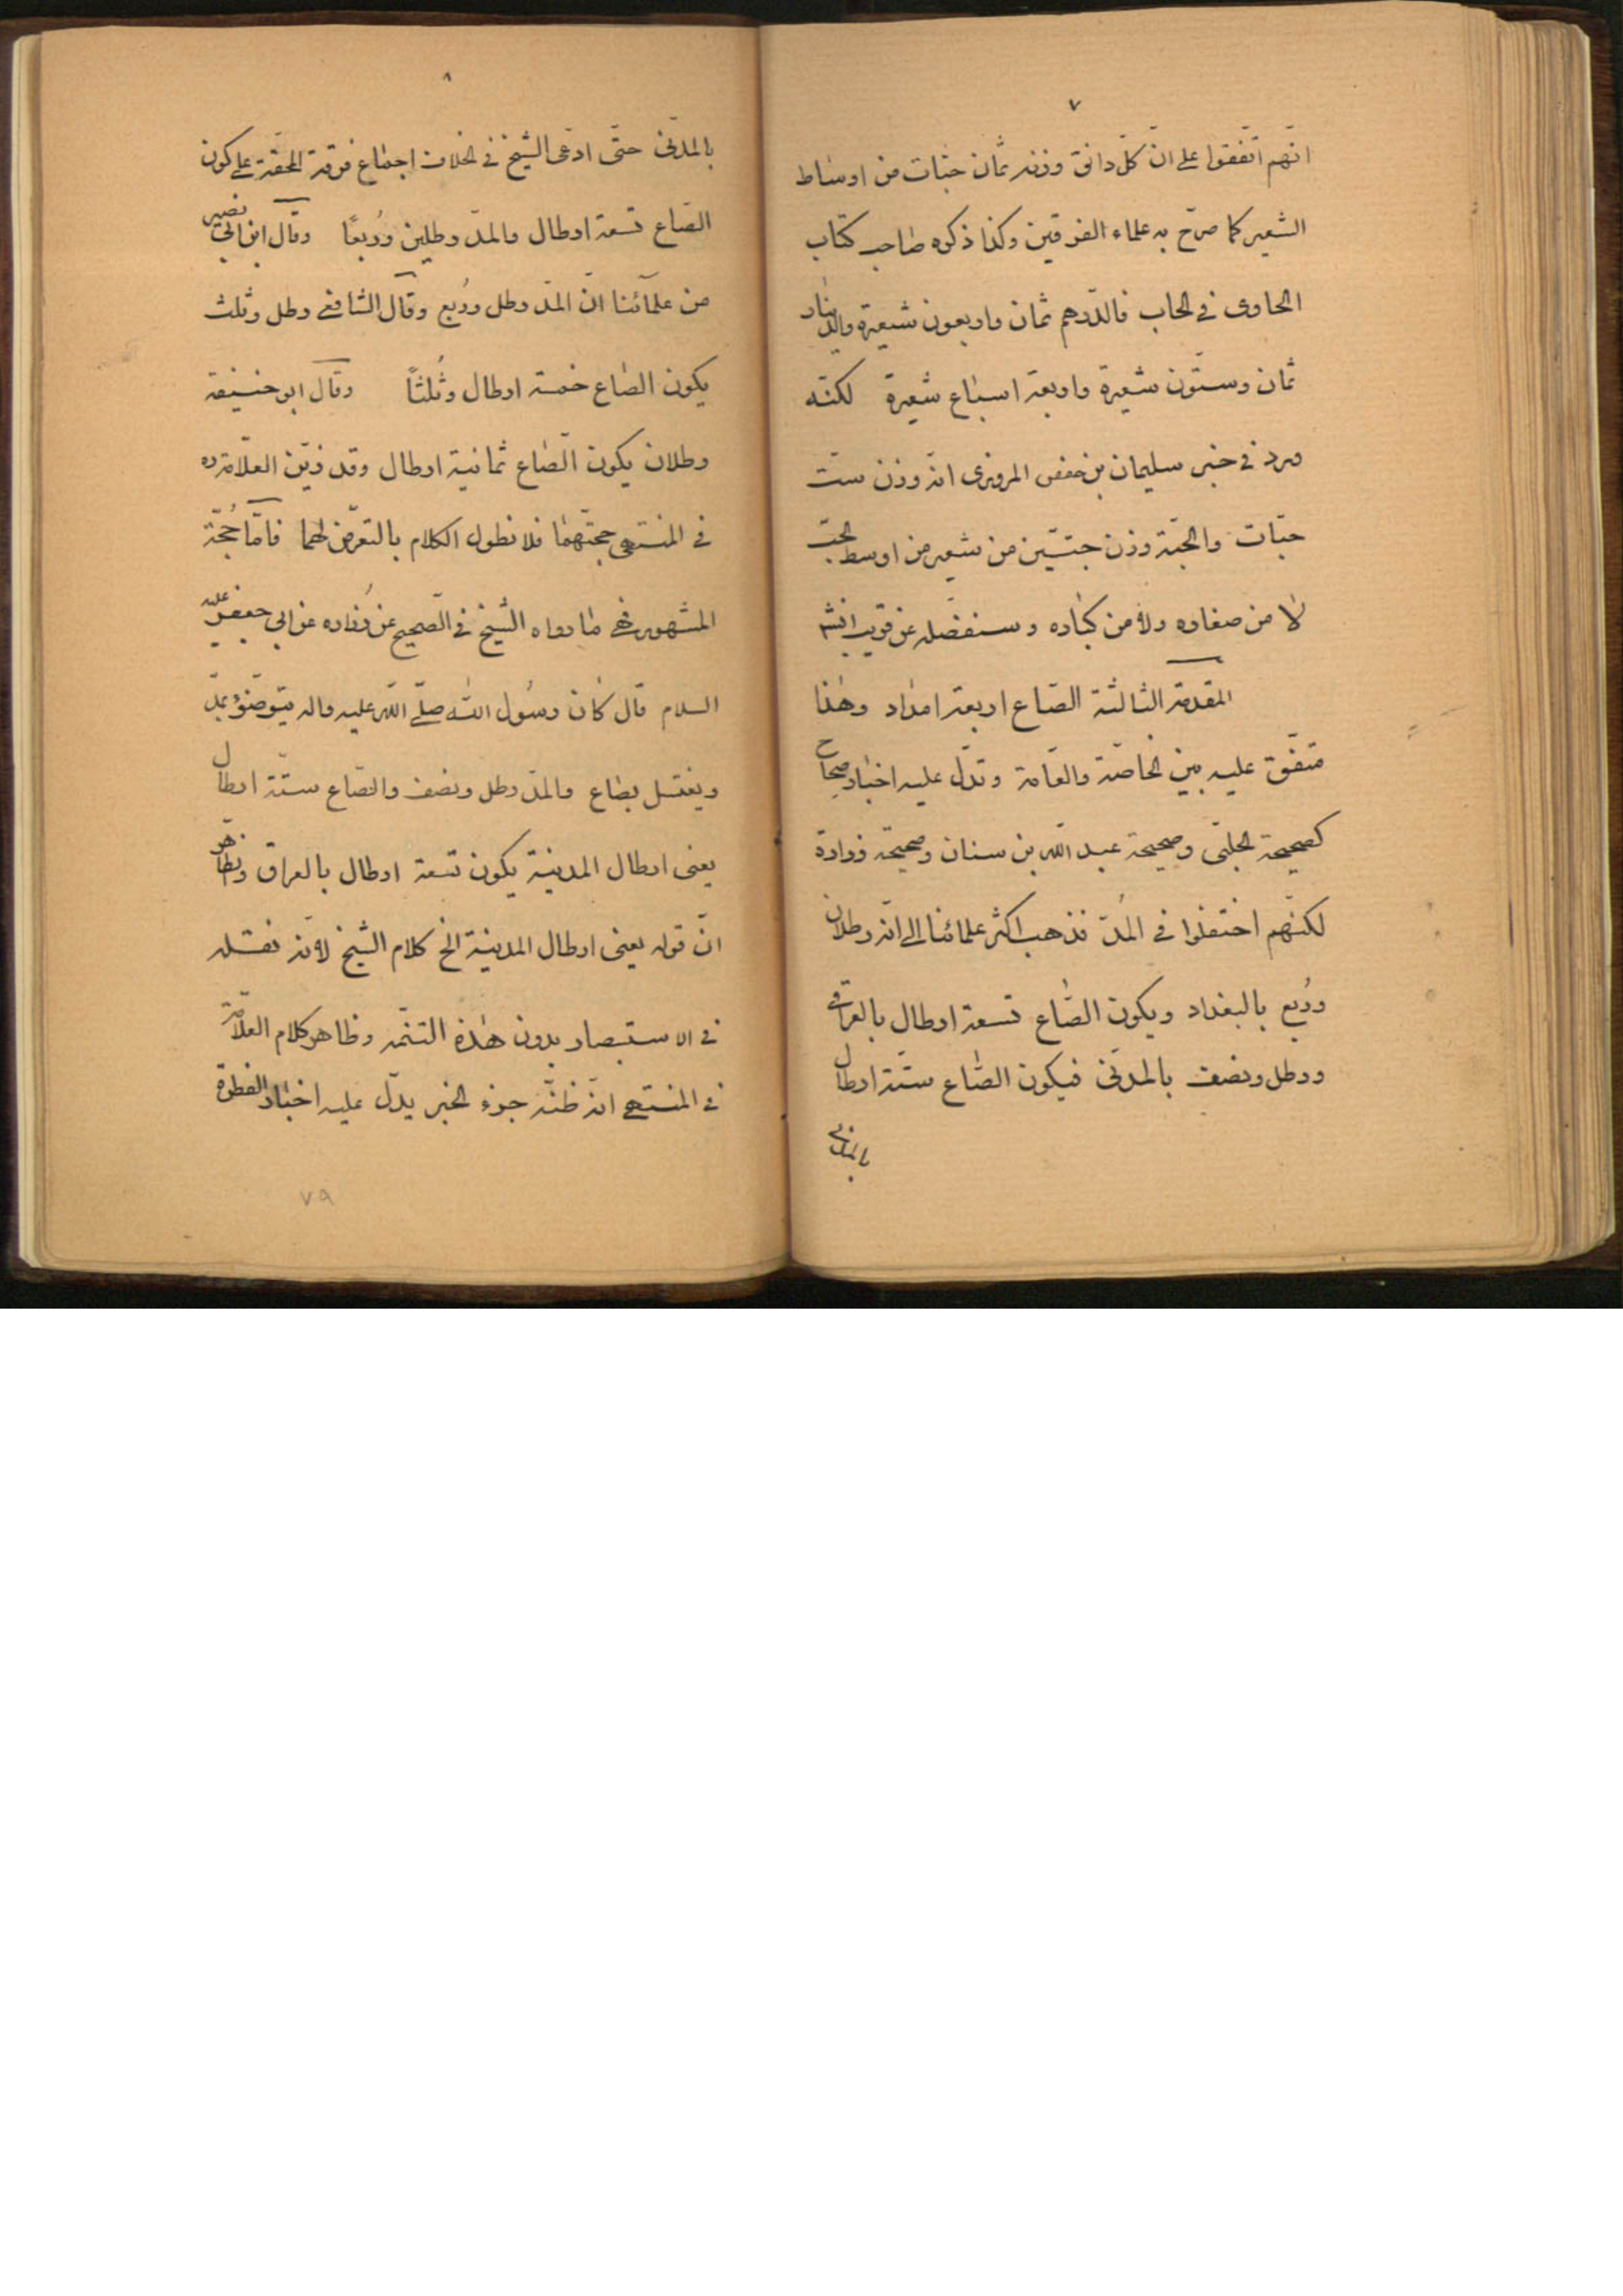 ٧
انّهم اتّفقوا على انّ كلّ دانق وزنه ثمان حبّات من اوساط
الشعير كما صرّح به علماء الفريقين وكذا ذكره صاحب كتاب
الحاوى فى الحساب فالدّرهم ثمان واربعون شعيرة والدينار
ثمان وستّون شعيرة واربعة اسباع شعيرة لكنّه
ورد فى خبر سليمان بن حفص المروزى انّه وزن ستّ
حبّات والحبّة وزن حبّتين من شعير من اوسط الحبّ
لا من صغاره ولا من كباره وسنفصّله عن قريب انش
المقدمة الثالثة الصّاع اربعة امداد وهذا
متّفق عليه بين الخاصّة والعامّة وتدلّ عليه اخبار صحاح
كصحيحة الحلبّى وصحيحة عبد اللّه بن سنان وصحيحة زرارة
لكنّهم اختلفوا فى المُدّ فذهب اكثر علمائنا الى انّه رطلان
ورُبع بالبغداد ويكون الصّاع تسعة ارطال بالعراقى
ورطل ونصف بالمدنّى فيكون الصّاع ستّة ارطال
بالمدنى
٨
بالمدنّى حتّى ادّعى الشيخ فى الخلاف اجماع فرقة المحقّة على كون
الصّاع تسعة ارطال والمدّ رطلين ورُبعًا وقال ابن ابى نصير
من علمآئنا انّ المدّ رطل ورُبع وقال الشافعى رطل وثلث
يكون الصّاع خمسة ارطال وثُلثاً وقال ابو حنيفة
رطلان يكون الصّاع ثمانية ارطال وقد زيّن العلّامة ره
فى المنتهى حجتّهما فلا نطول الكلام بالتعرّض لهما فامّا حُجّة
المشهور فهى ما رواه الشّيخ فى الصّحيح عن زُراره عن ابى جعفر عليه
السلام قال كان رسُول اللّه صلّى اللّه عليه واله يتوضّؤ بمدّ
ويغتسل بصاع والمدّ رطل ونصف والصّاع ستّة ارطال
يعنى ارطال المدينة يكون تسعة ارطال بالعراق وظاهر
انّ قوله يعنى ارطال المدينة الخ كلام الشّيخ لانّه نقله
فى الاستبصار بدون هذه التتمّه وظاهر كلام العلّامة
فى المنتهى انّه ظنّه جزء الخبر يدلّ عليه اخبار الفطرة
٧٩